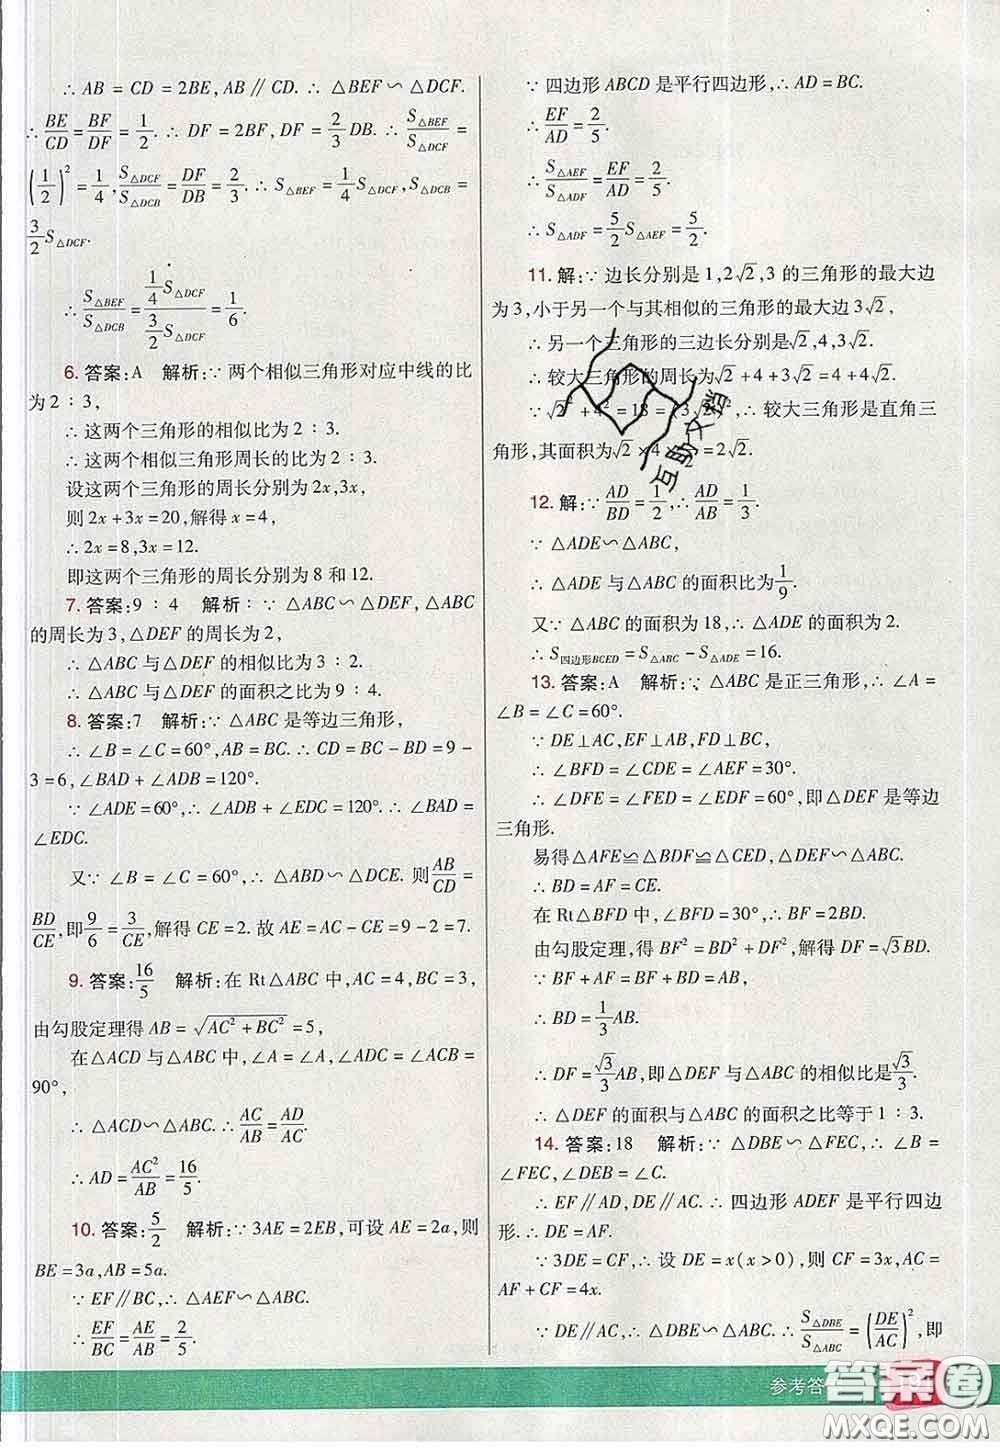 ∴ AB = CD = 2BE, AB∥CD. ∴ △BEF∽△DCF.
∴ BE/CD = BF/DF = 1/2. ∴ DF = 2BF, DF = 2/3 DB. ∴ S△BEF/S△DCF =
(1/2)² = 1/4, S△DCF/S△DCB = DF/DB = 2/3. ∴ S△BEF = 1/4 S△DCF, S△DCB =
3/2 S△DCF.
∴ S△BEF/S△DCB = (1/4 S△DCF)/(3/2 S△DCF) = 1/6.
6. 答案:A 解析:∵ 两个相似三角形对应中线的比
为 2∶3,
∴ 这两个三角形的相似比为 2∶3.
∴ 这两个相似三角形周长的比为 2∶3.
设这两个三角形的周长分别为 2x,3x,
则 2x + 3x = 20, 解得 x = 4,
∴ 2x = 8, 3x = 12.
即这两个三角形的周长分别为 8 和 12.
7. 答案:9∶4 解析:∵ △ABC∽△DEF, △ABC
的周长为 3, △DEF 的周长为 2,
∴ △ABC 与△DEF 的相似比为 3∶2.
∴ △ABC 与△DEF 的面积之比为 9∶4.
8. 答案:7 解析:∵ △ABC 是等边三角形,
∴ ∠B = ∠C = 60°, AB = BC. ∴ CD = BC − BD = 9 −
3 = 6, ∠BAD + ∠ADB = 120°.
∵ ∠ADE = 60°, ∴ ∠ADB + ∠EDC = 120°. ∴ ∠BAD =
∠EDC.
又∵ ∠B = ∠C = 60°, ∴ △ABD∽△DCE. 则 AB/CD =
BD/CE, 即 9/6 = 3/CE, 解得 CE = 2. 故 AE = AC − CE = 9 − 2 = 7.
9. 答案:16/5 解析:在 Rt△ABC 中, AC = 4, BC = 3,
由勾股定理得 AB = √(AC² + BC²) = 5,
在△ACD 与△ABC 中, ∠A = ∠A, ∠ADC = ∠ACB =
90°,
∴ △ACD∽△ABC. ∴ AC/AB = AD/AC.
∴ AD = AC²/AB = 16/5.
10. 答案:5/2 解析:∵ 3AE = 2EB, 可设 AE = 2a, 则
BE = 3a, AB = 5a.
∵ EF∥BC, ∴ △AEF∽△ABC.
∴ EF/BC = AE/AB = 2/5.
∵ 四边形 ABCD 是平行四边形, ∴ AD = BC.
∴ EF/AD = 2/5.
∴ S△AEF/S△ADF = EF/AD = 2/5.
∴ S△ADF = 5/2 S△AEF = 5/2.
11. 解:∵ 边长分别是 1,2√2,3 的三角形的最大边
为 3, 小于另一个与其相似的三角形的最大边 3√2,
∴ 另一个三角形的三边长分别是√2,4,3√2.
∴ 较大三角形的周长为√2 + 4 + 3√2 = 4 + 4√2.
∵ √2² + 4² = 18 = (3√2)², ∴ 较大三角形是直角三
角形, 其面积为√2 × 4 × 1/2 = 2√2.
12. 解:∵ AD/BD = 1/2, ∴ AD/AB = 1/3.
∵ △ADE∽△ABC,
∴ △ADE 与△ABC 的面积比为 1/9.
又∵ △ABC 的面积为 18, ∴ △ADE 的面积为 2.
∴ S四边形BCED = S△ABC − S△ADE = 16.
13. 答案:A 解析:∵ △ABC 是正三角形, ∴ ∠A =
∠B = ∠C = 60°.
∵ DE⊥AC, EF⊥AB, FD⊥BC,
∴ ∠BFD = ∠CDE = ∠AEF = 30°.
∴ ∠DFE = ∠FED = ∠EDF = 60°, 即△DEF 是等边
三角形.
易得△AFE≌△BDF≌△CED, △DEF∽△ABC.
∴ BD = AF = CE.
在 Rt△BFD 中, ∠BFD = 30°, ∴ BF = 2BD.
由勾股定理, 得 BF² = BD² + DF², 解得 DF = √3BD.
∵ BF + AF = BF + BD = 2BD + BD = AB,
∴ BD = 1/3 AB.
∴ DF = √3/3 AB, 即△DEF 与△ABC 的相似比是√3/3.
∴ △DEF 的面积与△ABC 的面积之比等于 1∶3.
14. 答案:18 解析:∵ △DBE∽△FEC, ∴ ∠B =
∠FEC, ∠DEB = ∠C.
∴ EF∥AD, DE∥AC. ∴ 四边形 ADEF 是平行四边
形. ∴ DE = AF.
∵ 3DE = CF, ∴ 设 DE = x(x > 0), 则 CF = 3x, AC =
AF + CF = 4x.
∵ DE∥AC, ∴ △DBE∽△ABC. ∴ S△DBE/S△ABC = (DE/AC)², 即
互助文档
参考答
答案卷
MXQE.COM